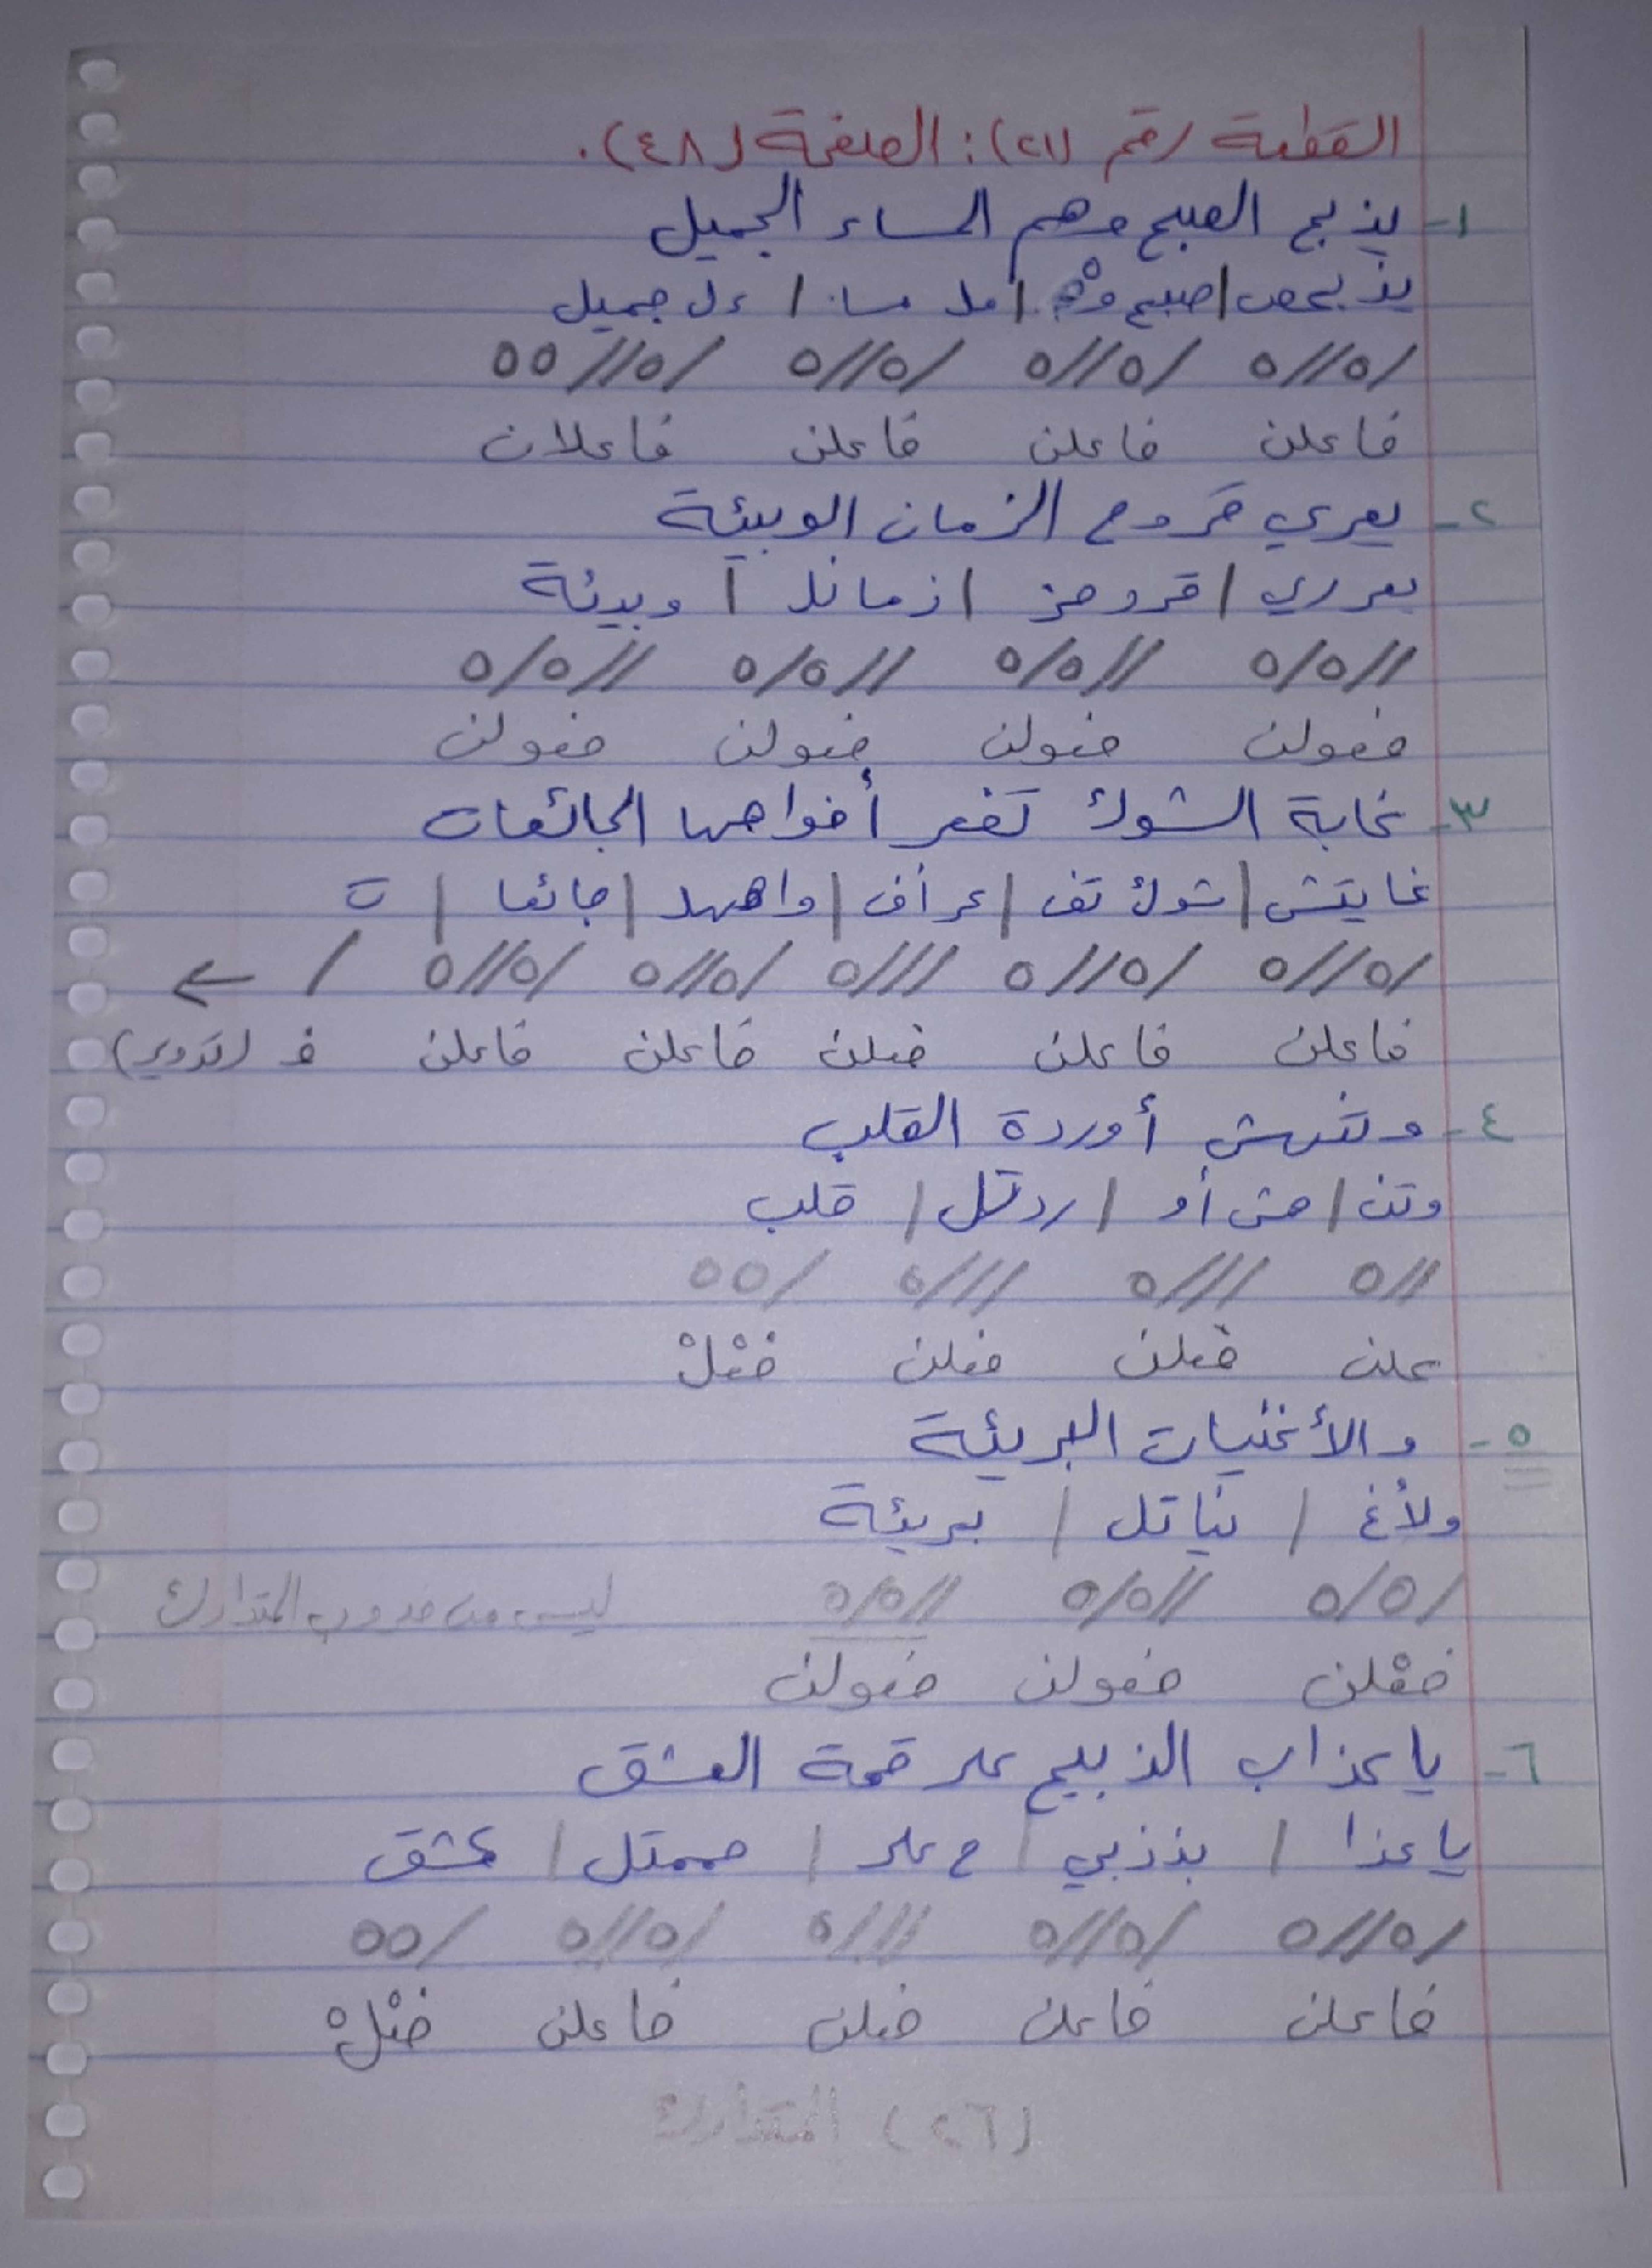 القطعة رقم (٢١): الصفحة (٤٨).
١- يذبح الصبح وهم المساء الجميل
يذبحص | صبح وهْـ | مل مسا | ءل جميل
/٥//٥ /٥//٥ /٥//٥ /٥//٥٥
فاعلن فاعلن فاعلن فاعلان
٢- يعري قروح الزمان الوبيئة
يعرري | قروحز | زمانل | وبيئة
//٥/٥ //٥/٥ //٥/٥ //٥/٥
فعولن فعولن فعولن فعولن
٣- غابة الشوك تفغر أفواهها الجائعات
غابتش | شوك تف | غر أف | واههل | جائعا | ت
/٥//٥ /٥//٥ ///٥ /٥//٥ /٥//٥ / ←
فاعلن فاعلن فعلن فاعلن فاعلن فـ (تدوير)
٤- وتنهش أوردة القلب
وتن | هش أو | ردتل | قلب
//٥ ///٥ ///٥ /٥٥
علن فعلن فعلن فعْلْ
٥- والأغنيات البريئة
ولأغ | نياتل | بريئة
/٥/٥ //٥/٥ //٥/٥ ليست من ضروب المتدارك
فعْلن فعولن فعولن
٦- يا عذاب الذبيح على قمة العشق
يا عذا | بذذبي | ح على | قممتل | عشق
/٥//٥ /٥//٥ ///٥ /٥//٥ /٥٥
فاعلن فاعلن فعلن فاعلن فعْلْ
(٢٦) المتدارك